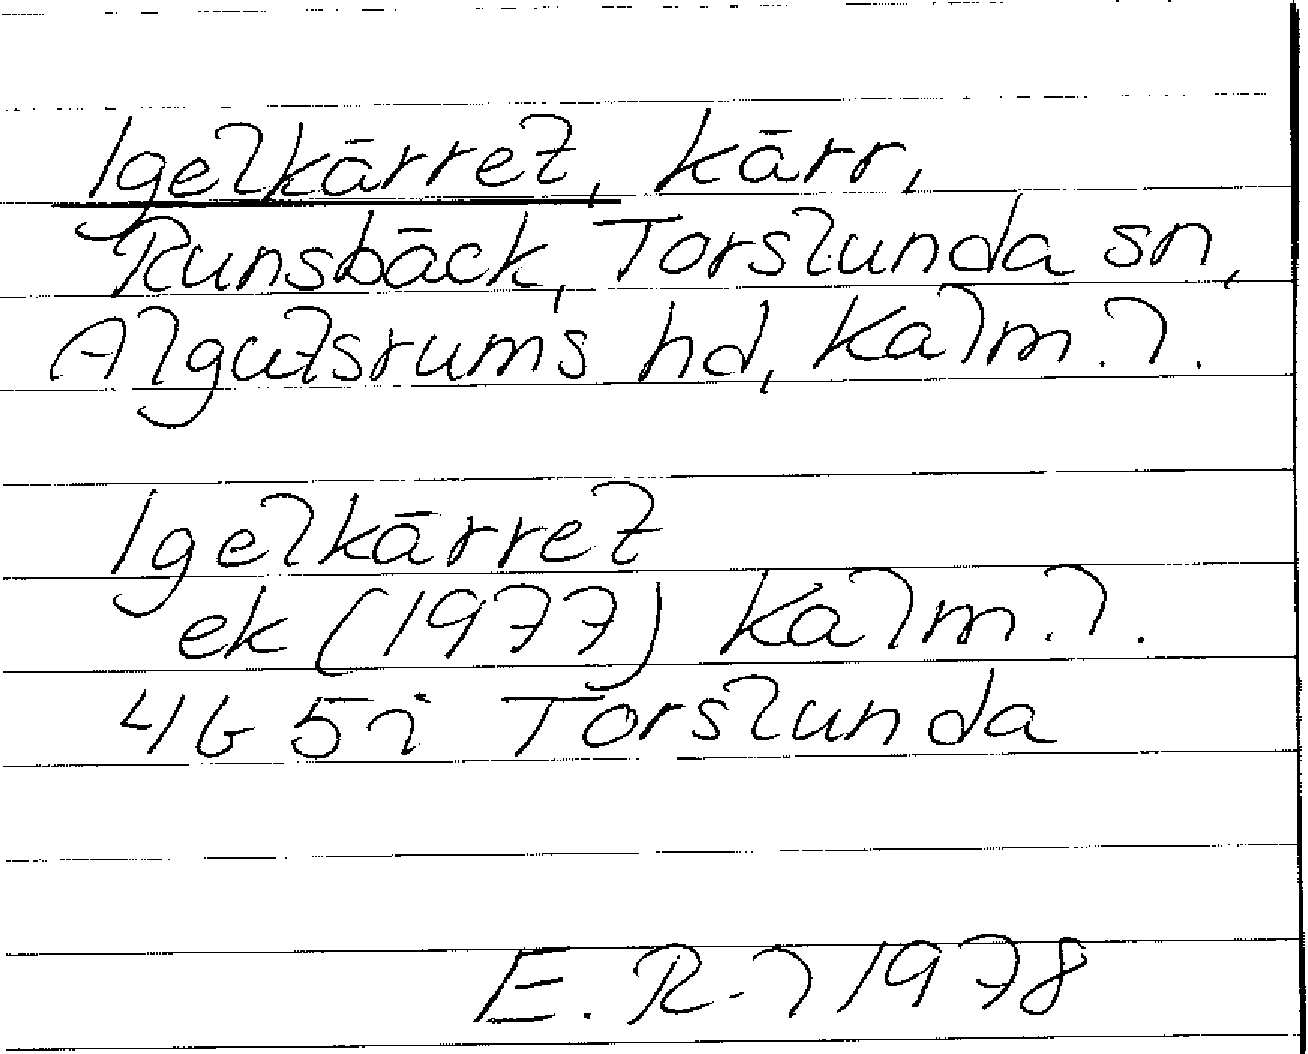 Igelkärret, kärr,
Runsbäck, Torslunda sn,
Algutsrums hd, Kalm. l.
Igelkärret
ek (1977) Kalm. l.
4G 5i Torslunda
E. R-l 1978